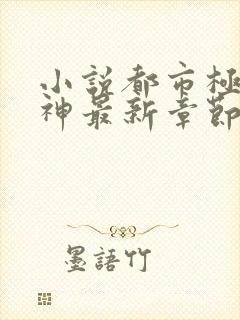 小說都市極
神最新章節
墨語竹